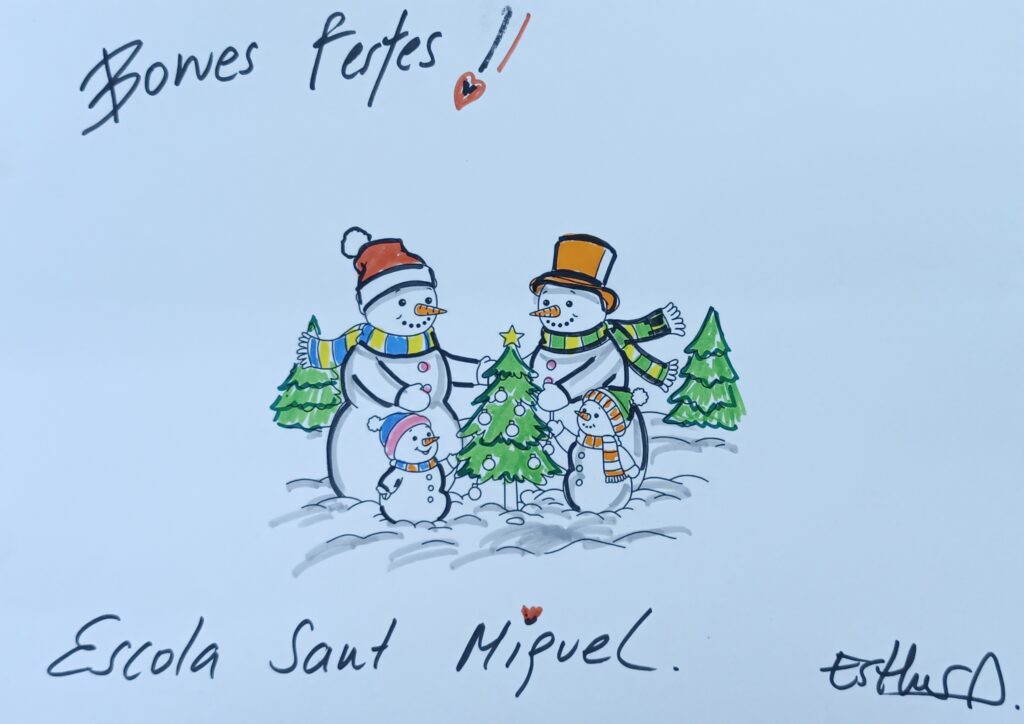 Bones festes !!
Escola Sant Miquel.